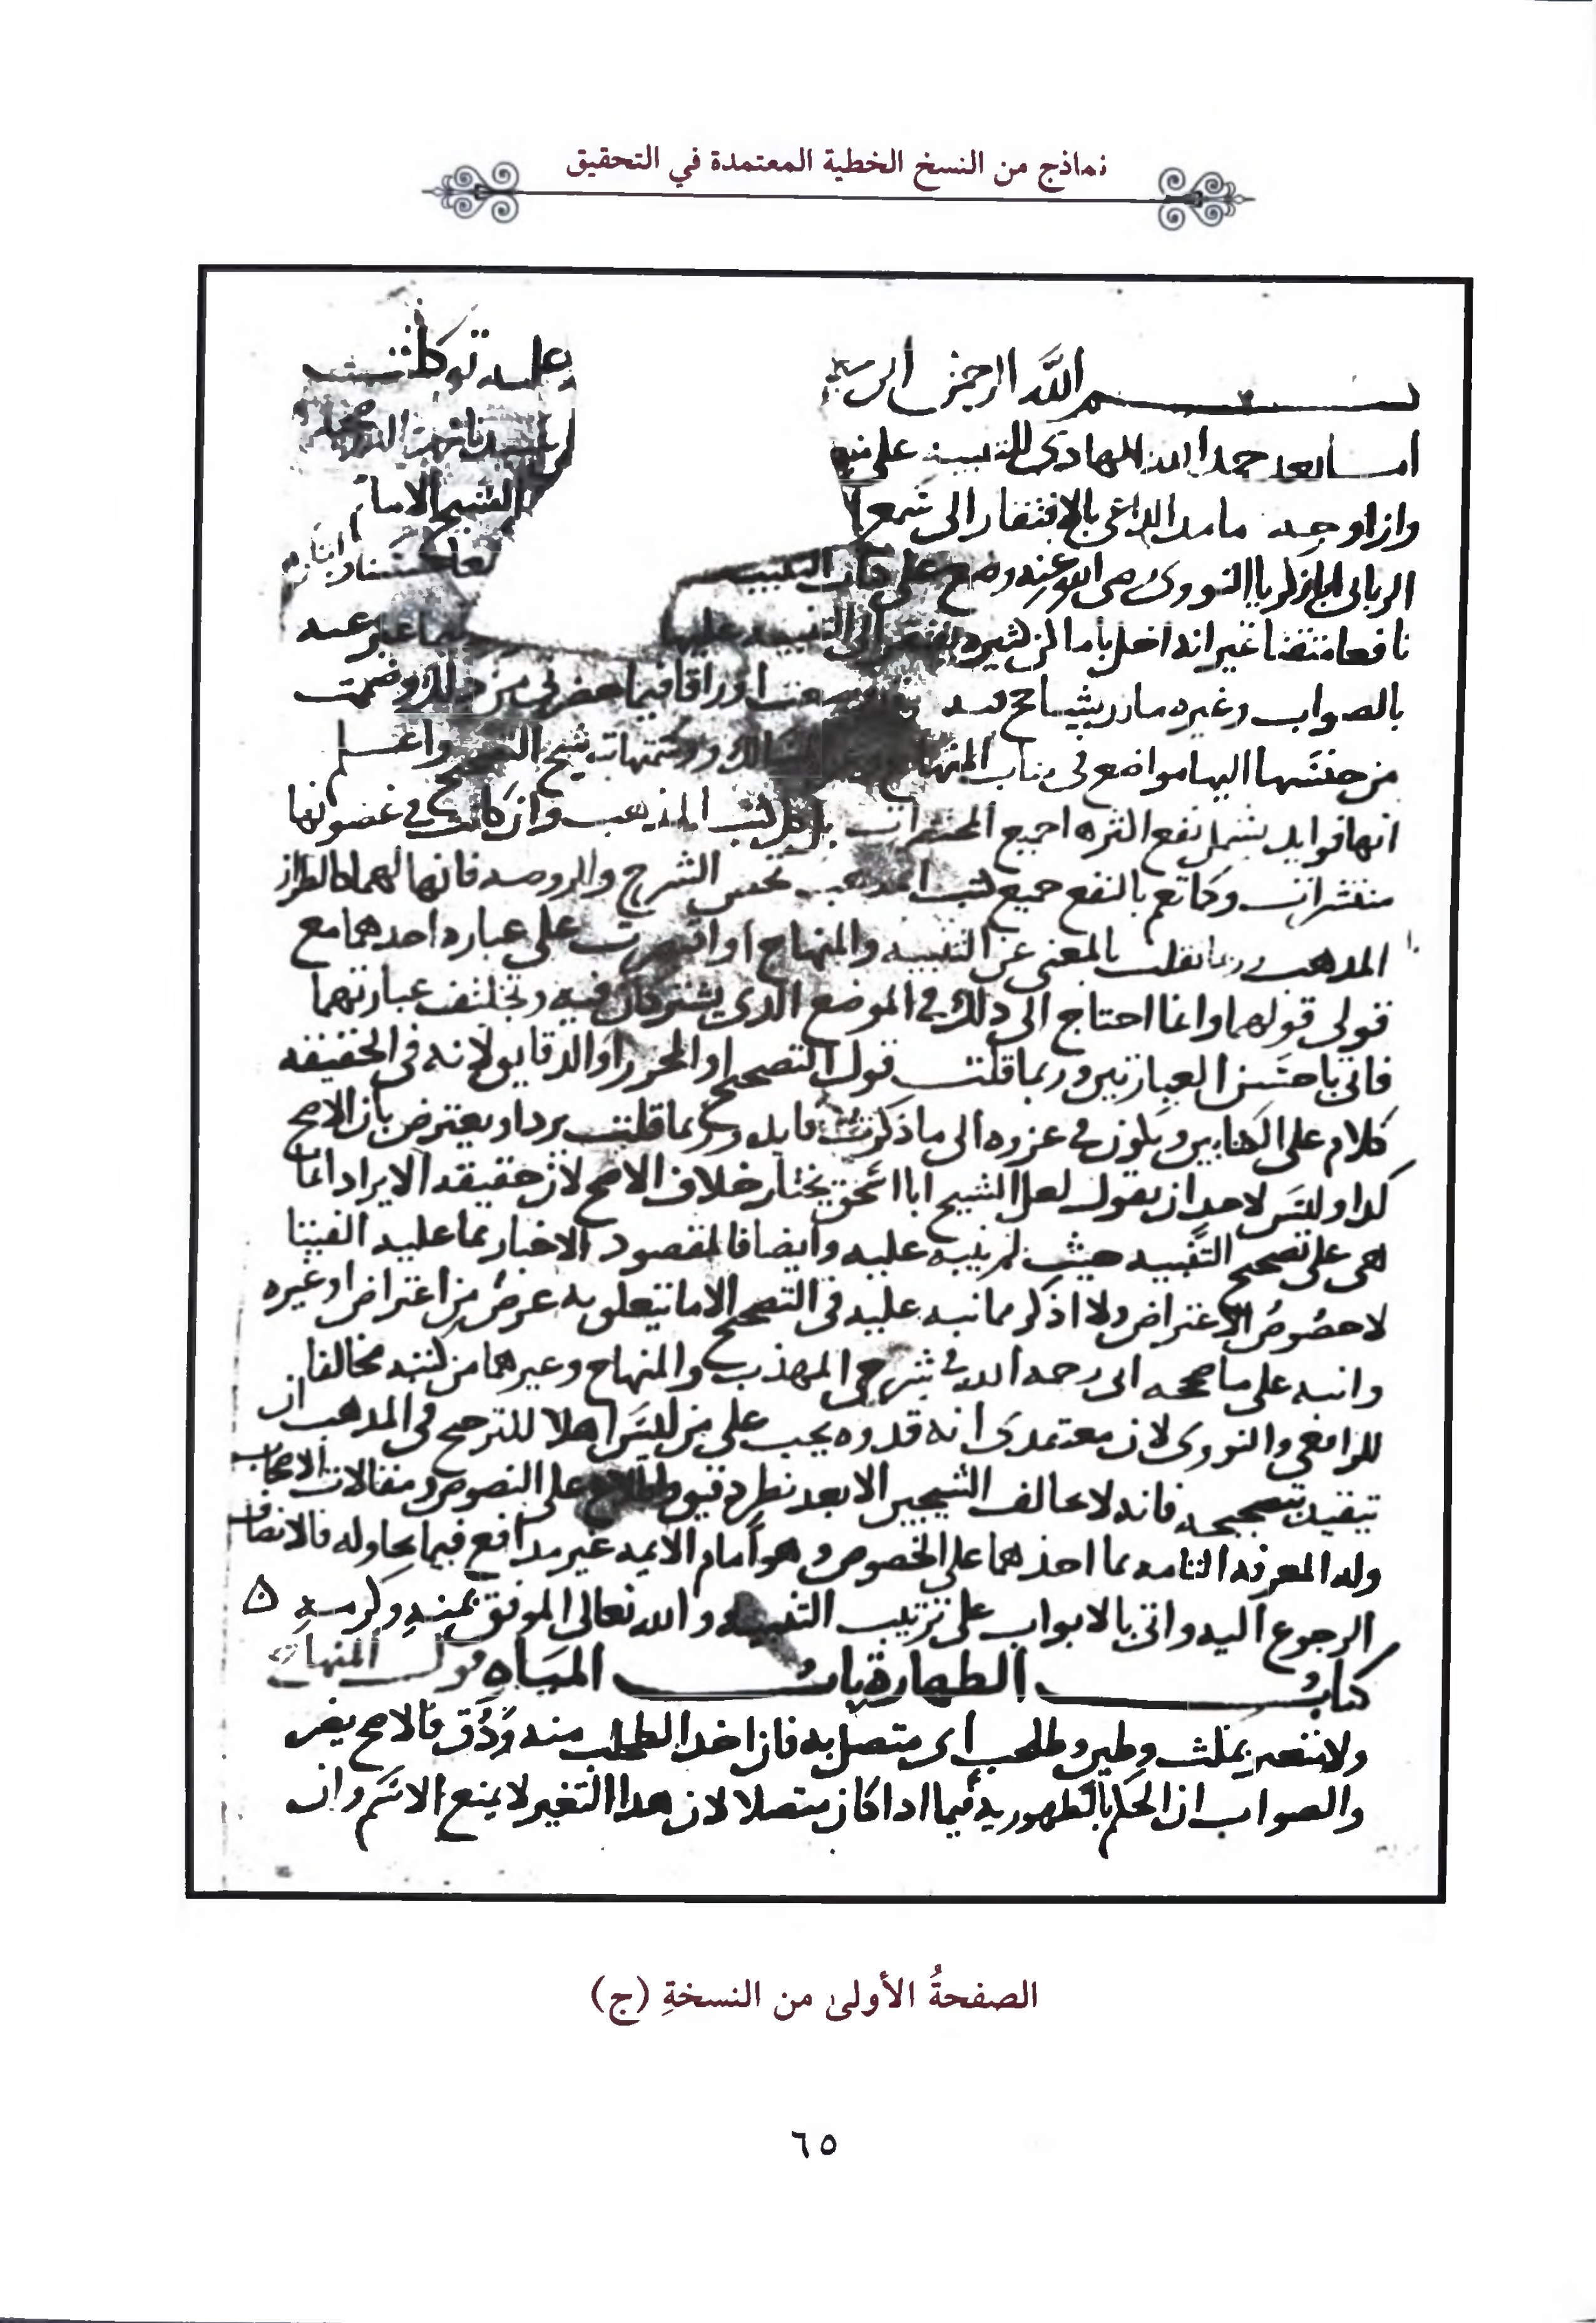 نماذج من النسخ الخطية المعتمدة في التحقيق
بسم الله الرحمن الرحيم عليه توكلت
اما بعد حمد الله الهادي للتنبيه على
وان اوجه ما مد الداعي بالافتقار الى الشيخ الامام
الرباني النووي رضي الله عنه وضع على كتاب التنبيه
نافعا متقنا غير انه اخل بأماكن كثيره الى التنبيه عليها
بالصواب وغيره اوراقا فيما حضرني من ذلك وضممت
من حسنها اليها مواضع في كتاب المنهاج شيخ واعلم
انها فوايد يشمل نفع اكثرها جميع المختصرات بل كل كتب المذهب وان كانت في غضونها
منتشرات وكما تعم بالنفع جميع كتب المذهب تخص الشرح والروضه فانها لهما كالطراز
المذهب وربما نقلت بالمعنى عن التنبيه والمنهاج او اقتصرت على عباره احدهما مع
قولي قولهما وانما احتاج الى ذلك في الموضع الذي يشتركان فيه وتختلف عبارتهما
فاتي باحسن العبارتين وربما قلت قول التصحيح او المحرر او الدقايق لانه في الحقيقه
كلام على الكتابين ويكون في عزوه الى ما ذكرت فايده وربما قلت يرد او يعترض بان الاصح
كذا وليس لاحد ان يقول لعل الشيخ ابا اسحق يختار خلاف الاصح لان حقيقه الايراد انما
هي على تصحيح التنبيه حيث لم ينبه عليه وايضا فالمقصود الاخبار بما عليه الفتيا
لا خصوص الاعتراض ولا اذكر مما نبه عليه في التصحيح الا ما تتعلق به غرض من اعتراض او غيره
وانبه على ما صححه ابي رحمه الله في شرحي المهذب والمنهاج وغيرهما من كتبه مخالفا
للرافعي والنووي لان معتمدي انه قدوه يجب على من ليس اهلا للترجيح في المذهب ان
يتقيد بتصحيحه فانه لا يخالف الشيخين الا بعد نظر دقيق واطلاع على النصوص ومقالات الاصحاب
وله المعرفه التامه بما اخذهما على الخصوص وهو امام الايمه غير مدافع فيما يحاوله فالانصاف
الرجوع اليه واتي بالابواب على ترتيب التنبيه والله تعالى الموفق بمنه وكرمه ه
كتاب الطهارة باب المياه قول المنهاج
ولا تغير بمكث وطين وطحلب اي متصل به فان اخذ الطحلب منه ودق فالاصح يضر
والصواب ان الحكم بالطهوريه فيما اذا كان متصلا لان هذا التغير لا يمنع الاسم وان
الصفحةُ الأولىٰ من النسخةِ (ج)
٦٥